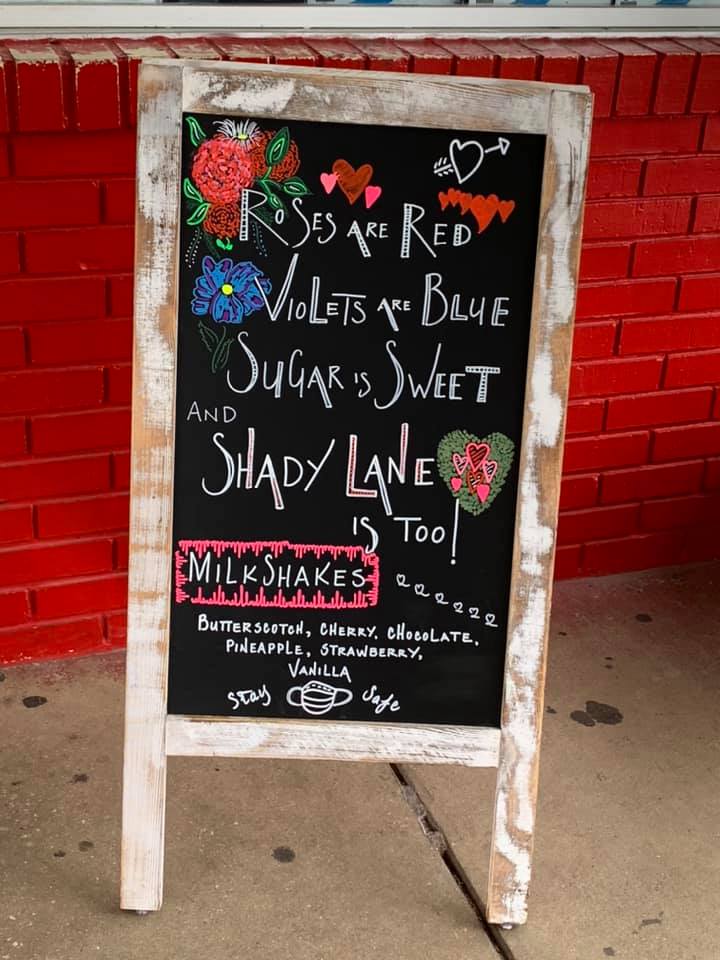 Roses are Red
Violets are Blue
Sugar is Sweet
and
Shady Lane
is too!
Milkshakes
Butterscotch, Cherry, Chocolate,
Pineapple, Strawberry,
Vanilla
Stay Safe